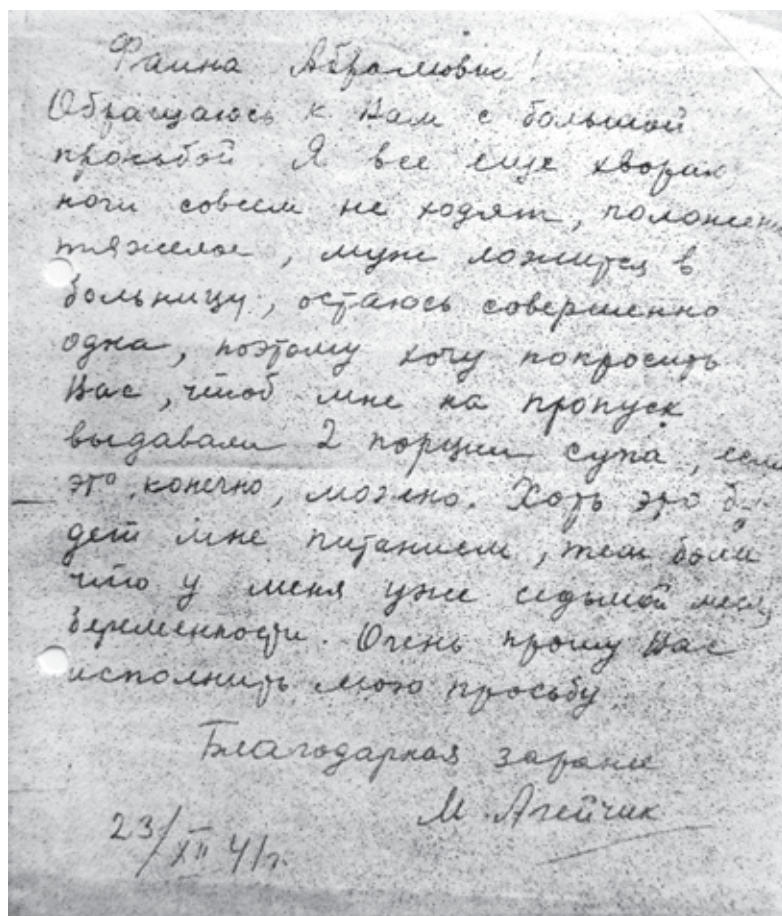 Фаина Абрамовна!
Обращаюсь к Вам с большой
просьбой. Я все еще хвораю
ноги совсем не ходят, положени
тяжелое, муж ложится в
больницу, остаюсь совершенно
одна, поэтому хочу попросить
Вас, чтоб мне на пропуск
выдавали 2 порции супа, если
это, конечно, можно. Хоть это б-
дет мне питанием, тем боли
что у меня уже седьмой меся
беременности. Очень прошу Вас
исполнить мою просьбу.
Благодарная заране
М. Агейчик
23/XII 41 г.